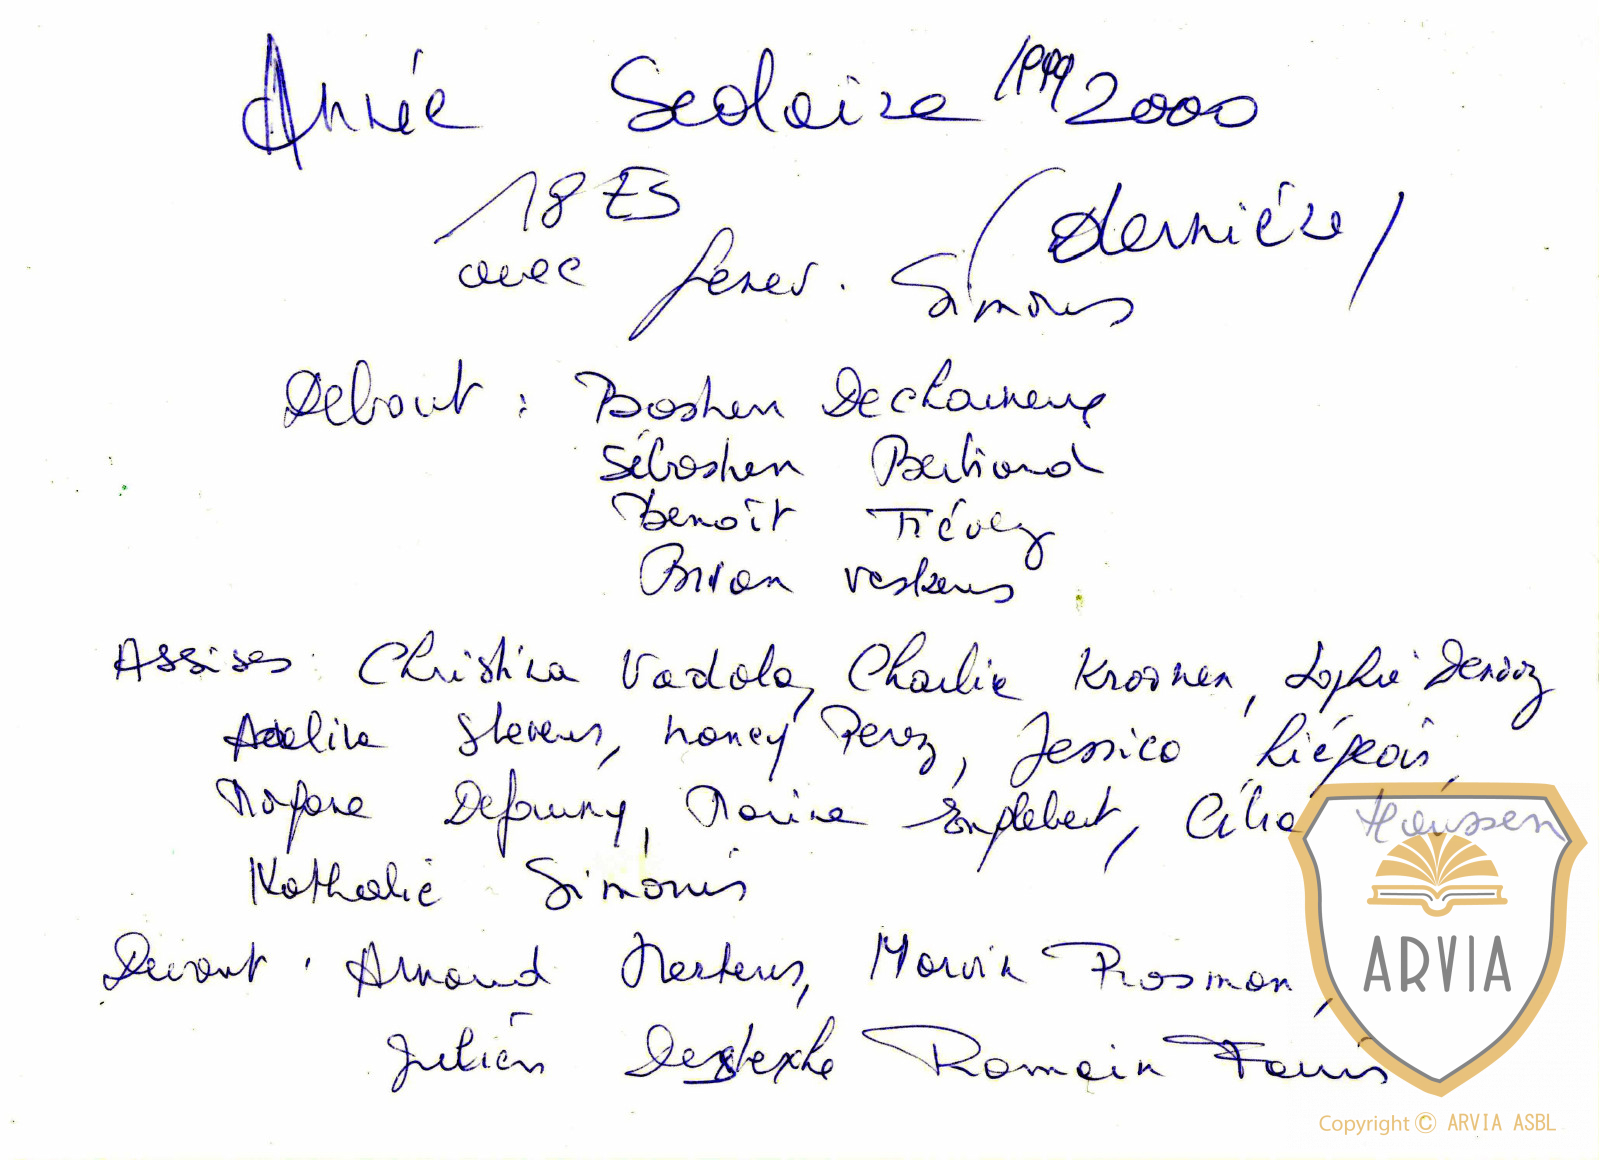 Année Scolaire 1999 2000
18 ES
(dernière)
avec Genev. Simonis
Debout : Bastien Dechaineux
Sébastien Bertrand
Benoît Tiévez
Brian Veskens
Assises : Christina Vadola, Charline Kroonen, Sophie Dendooz
Adeline Stevens, Nancy Perez, Jessica Liégeois,
Morgane Defauny, Marine Englebert, Célia Haussen
Nathalie Simonis
Devant : Arnaud Mertens, Marvin Prosman,
Julien Destexhe Romain Fauris
ARVIA
Copyright © ARVIA ASBL